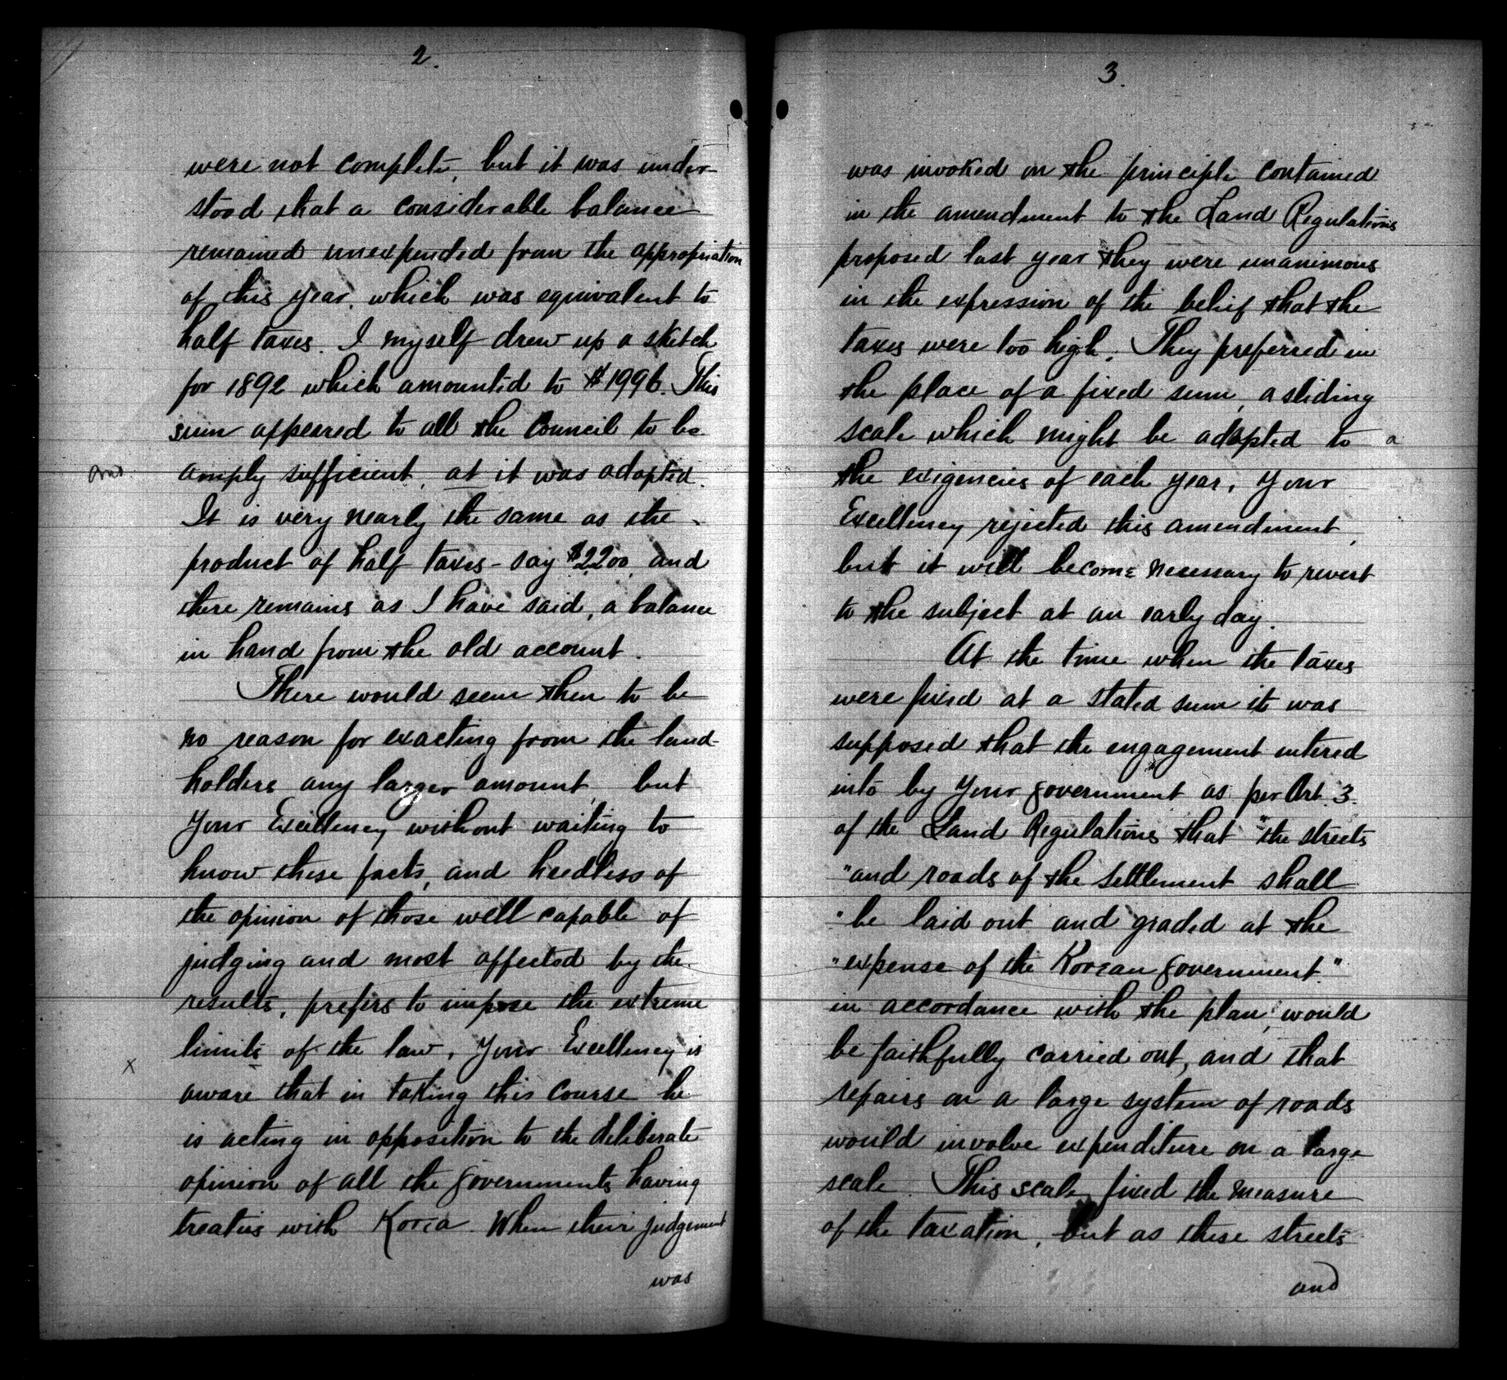 2.
were not complete, but it was under-
stood that a considerable balance
remained unexpended from the appropriation
of this year, which was equivalent to
half taxes. I myself drew up a sketch
for 1892 which amounted to $1996. This
sum appeared to all the Council to be
and
amply sufficient, at it was adopted.
It is very nearly the same as the
product of half taxes - say $2200, and
there remains as I have said, a balance
in hand from the old account.
There would seem then to be
no reason for exacting from the land-
holders any larger amount, but
Your Excellency without waiting to
know these facts, and heedless of
the opinion of those well capable of
judging and most affected by the
results, prefers to impose the extreme
limits of the law. Your Excellency is
x
aware that in taking this course he
is acting in opposition to the deliberate
opinion of all the Governments having
treaties with Korea. When their judgement
was
3.
was invoked on the principle contained
in the amendment to the Land Regulations
proposed last year they were unanimous
in the expression of the belief that the
taxes were too high. They preferred in
the place of a fixed sum, a sliding
scale which might be adapted to a
the exigencies of each year. Your
Excellency rejected this amendment,
but it will become necessary to revert
to the subject at an early day.
At the time when the taxes
were fixed at a stated sum it was
supposed that the engagement entered
into by Your Government as per Art. 3.
of the Land Regulations that "the streets
"and roads of the Settlement shall
"be laid out and graded at the
"expense of the Korean Government"
in accordance with the plan, would
be faithfully carried out, and that
repairs on a large system of roads
would involve expenditure on a large
scale. This scale fixed the measure
of the taxation, but as these streets
and